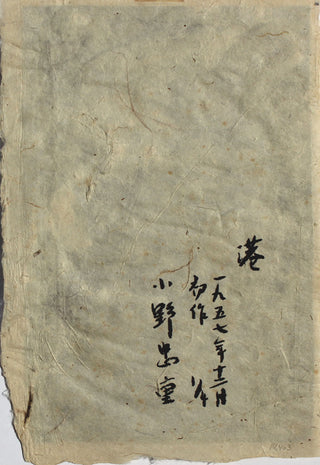 港
一九五七年十二月
作
小野忠重